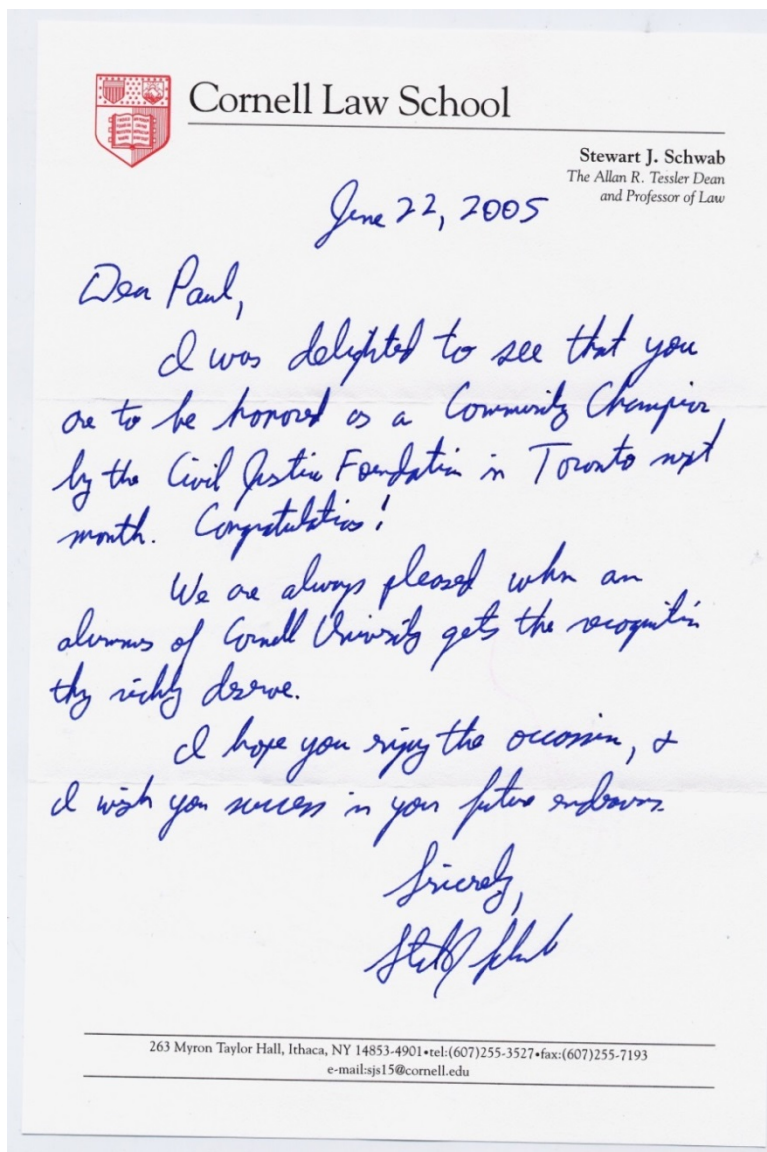 Cornell Law School
Stewart J. Schwab
The Allan R. Tessler Dean
and Professor of Law
June 22, 2005
Dear Paul,
I was delighted to see that you
are to be honored as a Community Champion
by the Civil Justice Foundation in Toronto next
month. Congratulations!
We are always pleased when an
alumnus of Cornell University gets the recognition
they richly deserve.
I hope you enjoy the occasion, &
I wish you success in your future endeavors.
Sincerely,
Stewart J. Schwab
263 Myron Taylor Hall, Ithaca, NY 14853-4901•tel:(607)255-3527•fax:(607)255-7193
e-mail:sjs15@cornell.edu